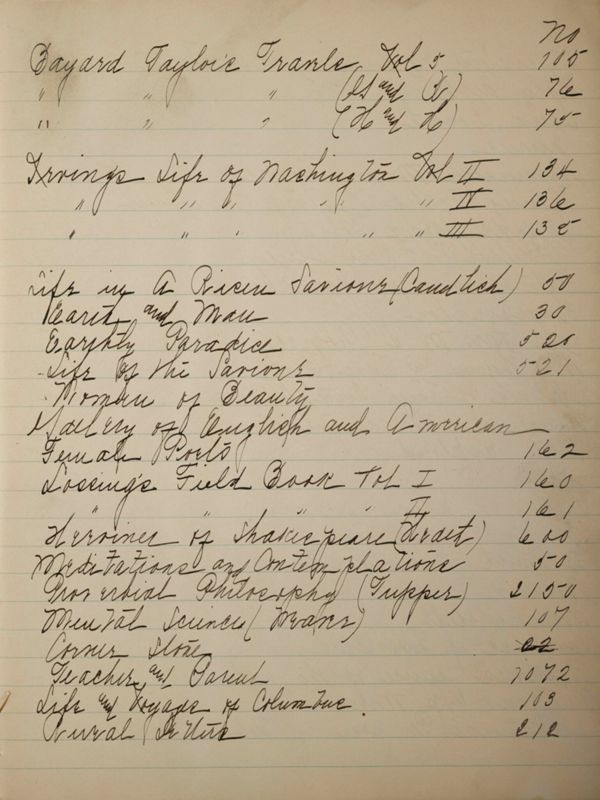 No
Bayard Taylors Travels Vol 5 105
" " " ( and ) 76
" " " (H and H) 75
Irvings Life of Washington Vol II 134
" " " " " IV 136
" " " " " III 135
Life in A Risen Saviour (Candlish) 50
Earth and Man 30
Earthly Paradice 520
Life of the Saviour 521
Women of Beauty
Gallery of English and American
Female Poets 162
Lossings Field Book Vol I 160
" " " " II 161
Heroines of Shakespeare (Heath) 600
Meditations and Contemplations 50
Proverbial Philosophy (Tupper) 2150
Mental Science ( ) 107
Corner Stone 22
Teacher and Parent 1072
Life and Voyage of Columbus 103
Rural 212